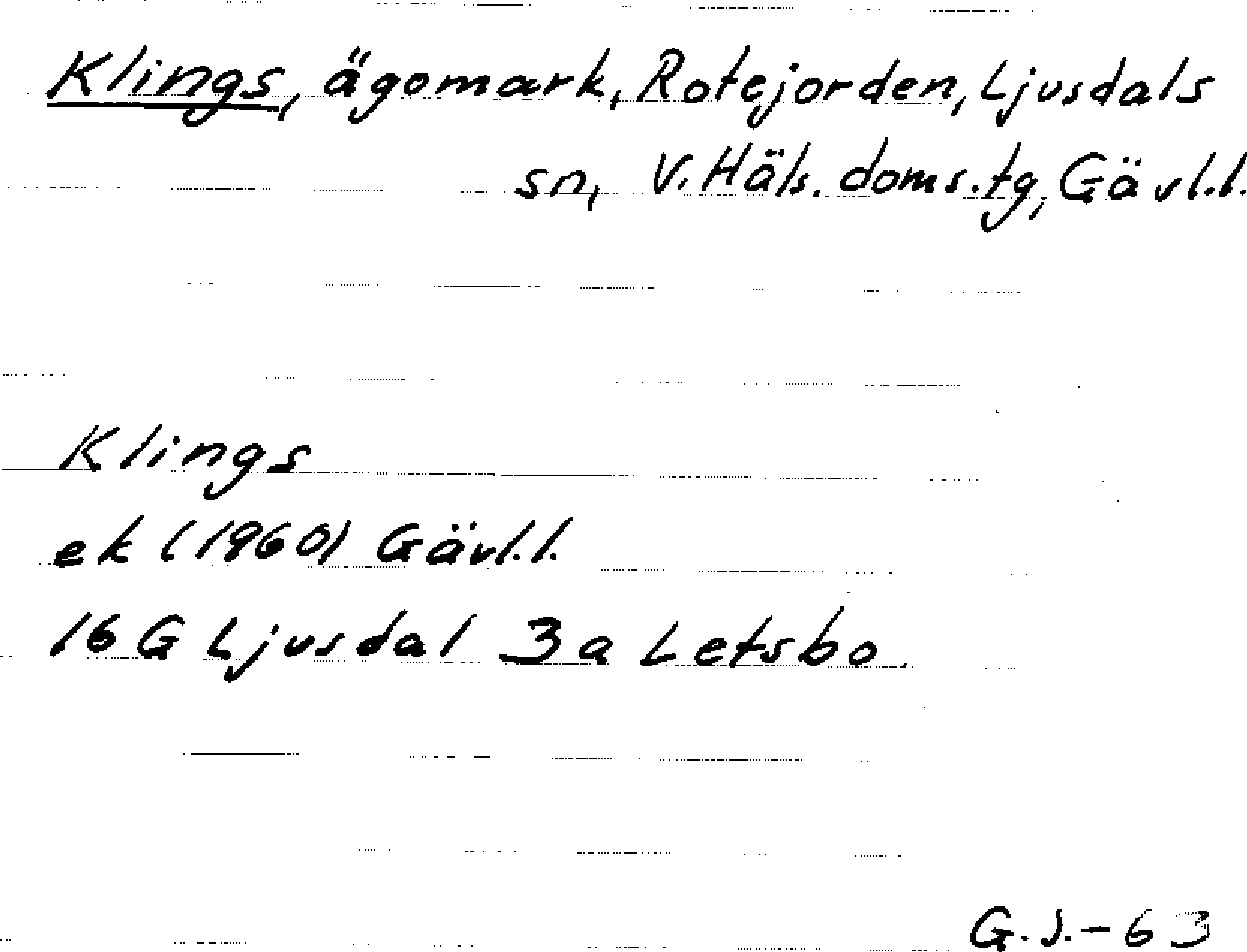 Klings, ägomark, Rotejorden, Ljusdals
sn, V. Häls. doms.tg, Gävl.l.
Klings
ek (1960) Gävl.l.
16 G Ljusdal 3a Letsbo
G.J.-63